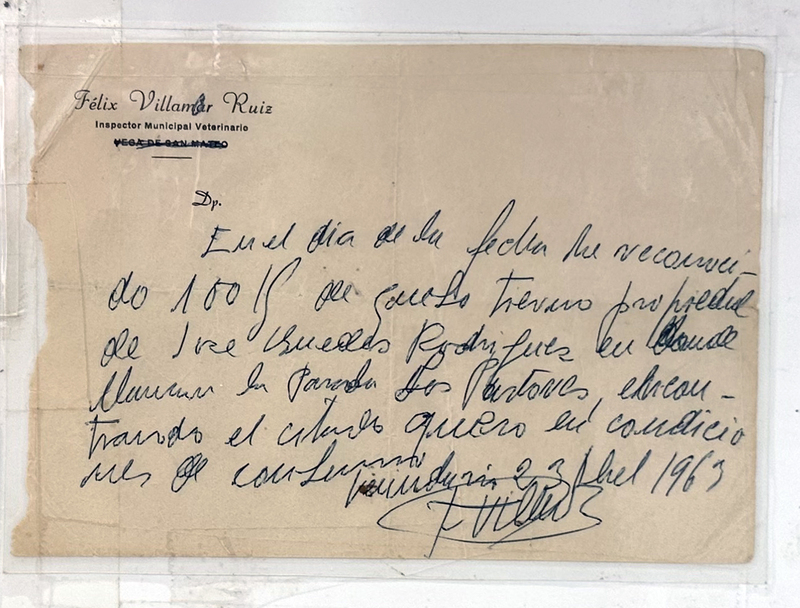 Félix Villamor Ruiz
Inspector Municipal Veterinario
VEGA DE SAN MATEO
Dp.
En el dia de la fecha he reconoci-
do 100 de queso tierno propiedad
de Jose Guedes Rodriguez en donde
llaman la Parada Los Pastores, encon-
trando el citado queso en condicio
nes de consumo
23 Abril 1963
F Villar